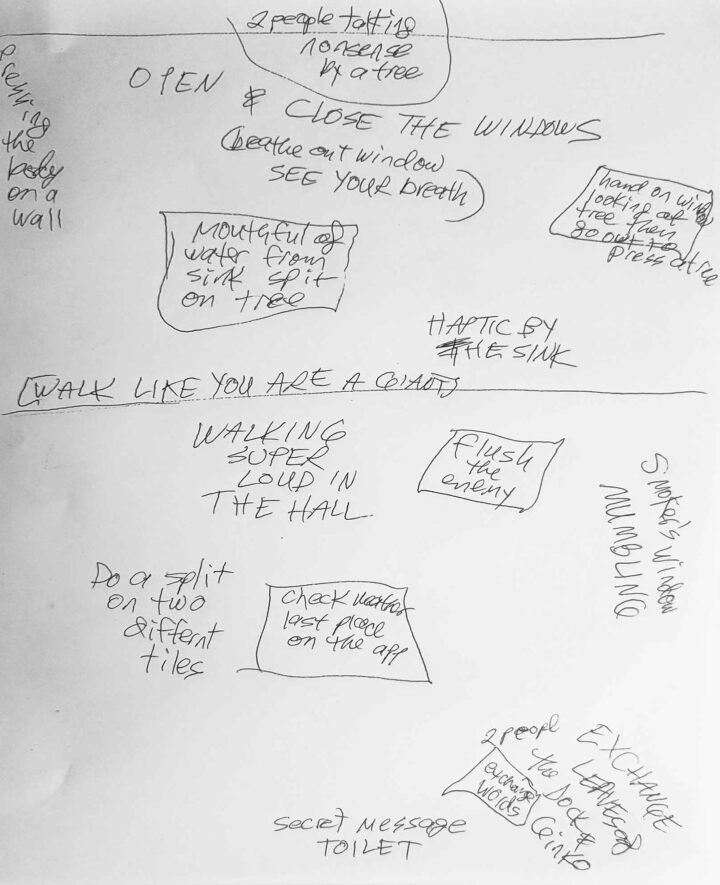 2 people talking
nonsense
by a tree
pressing
the
body
on a
wall
OPEN & CLOSE THE WINDOWS
(breathe out window
SEE YOUR breath)
hand on window
looking at
tree then
go out to
press a tree
Mouthful of
water from
sink spit
on tree
HAPTIC BY
THE SINK
[WALK LIKE YOU ARE A GIANT]
WALKING
SUPER
LOUD IN
THE HALL
flush
the
enemy
Smoker's window
MUMBLING
Do a split
on two
differnt
tiles
check weather
last place
on the app
2 peopl
EXCHANGE
LEAVES of
the DOCK &
Ginko
exchange
words
secret message
TOILET